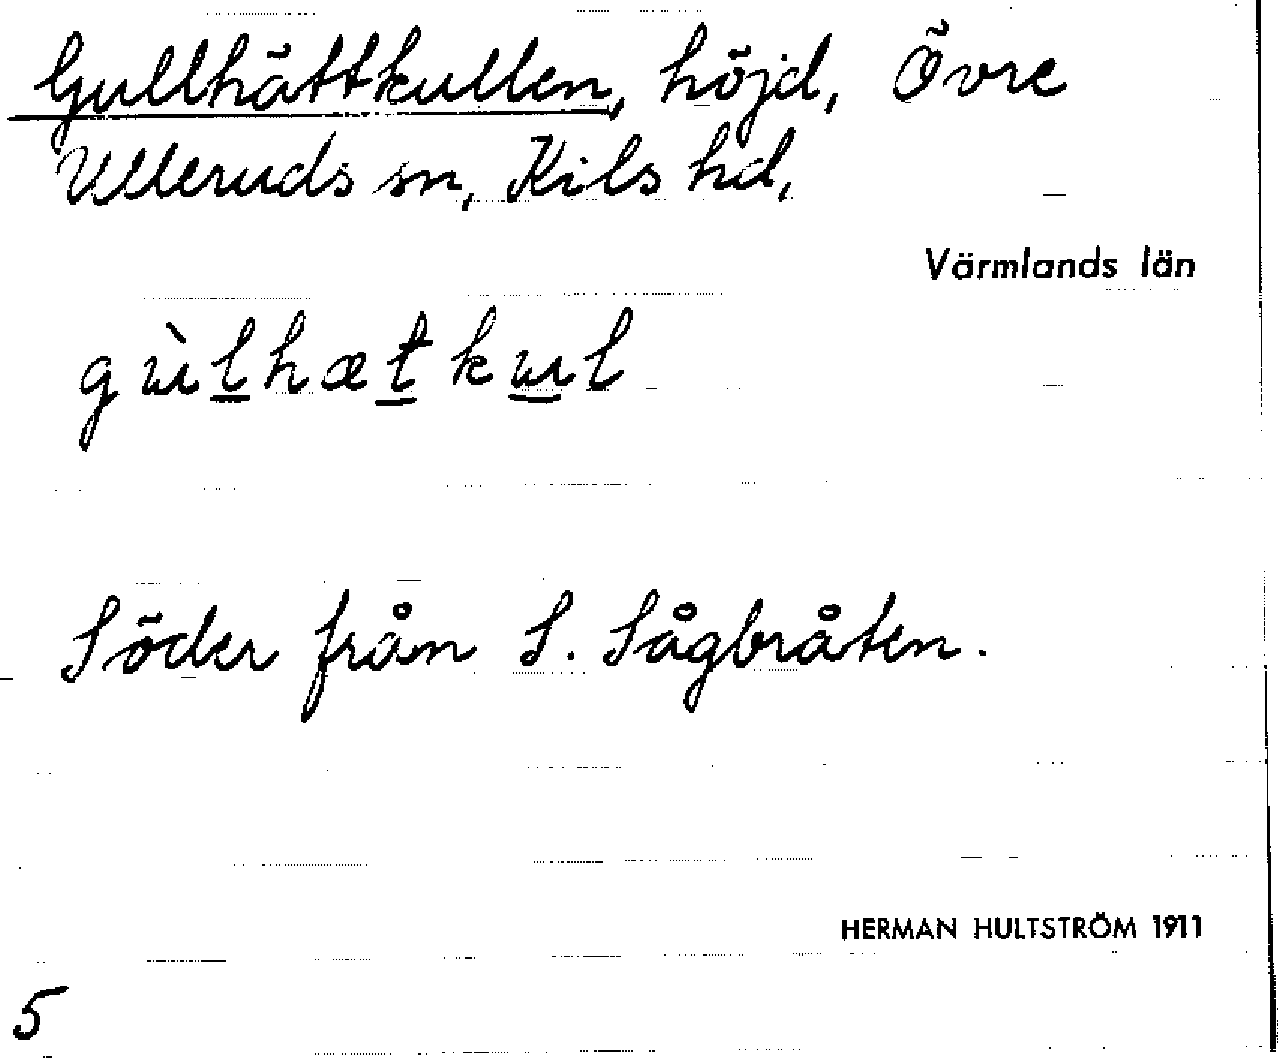 Gullhättkullen, höjd, Övre
Ulleruds sn, Kils hd,
Värmlands län
gùlhætkul
Söder från S. Sågbråten.
HERMAN HULTSTRÖM 1911
5